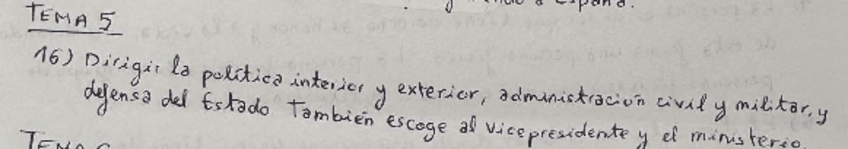 España.
TEMA 5
16) Dirigir la política interior y exterior, administración civil y militar, y
defensa del Estado También escoge al vicepresidente y el ministerio.
TEMA